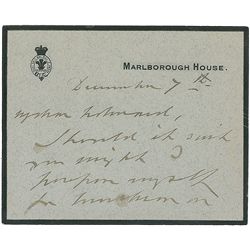 MARLBOROUGH HOUSE.
December 7th
My dear
Should it suit
you might
myself
for luncheon on